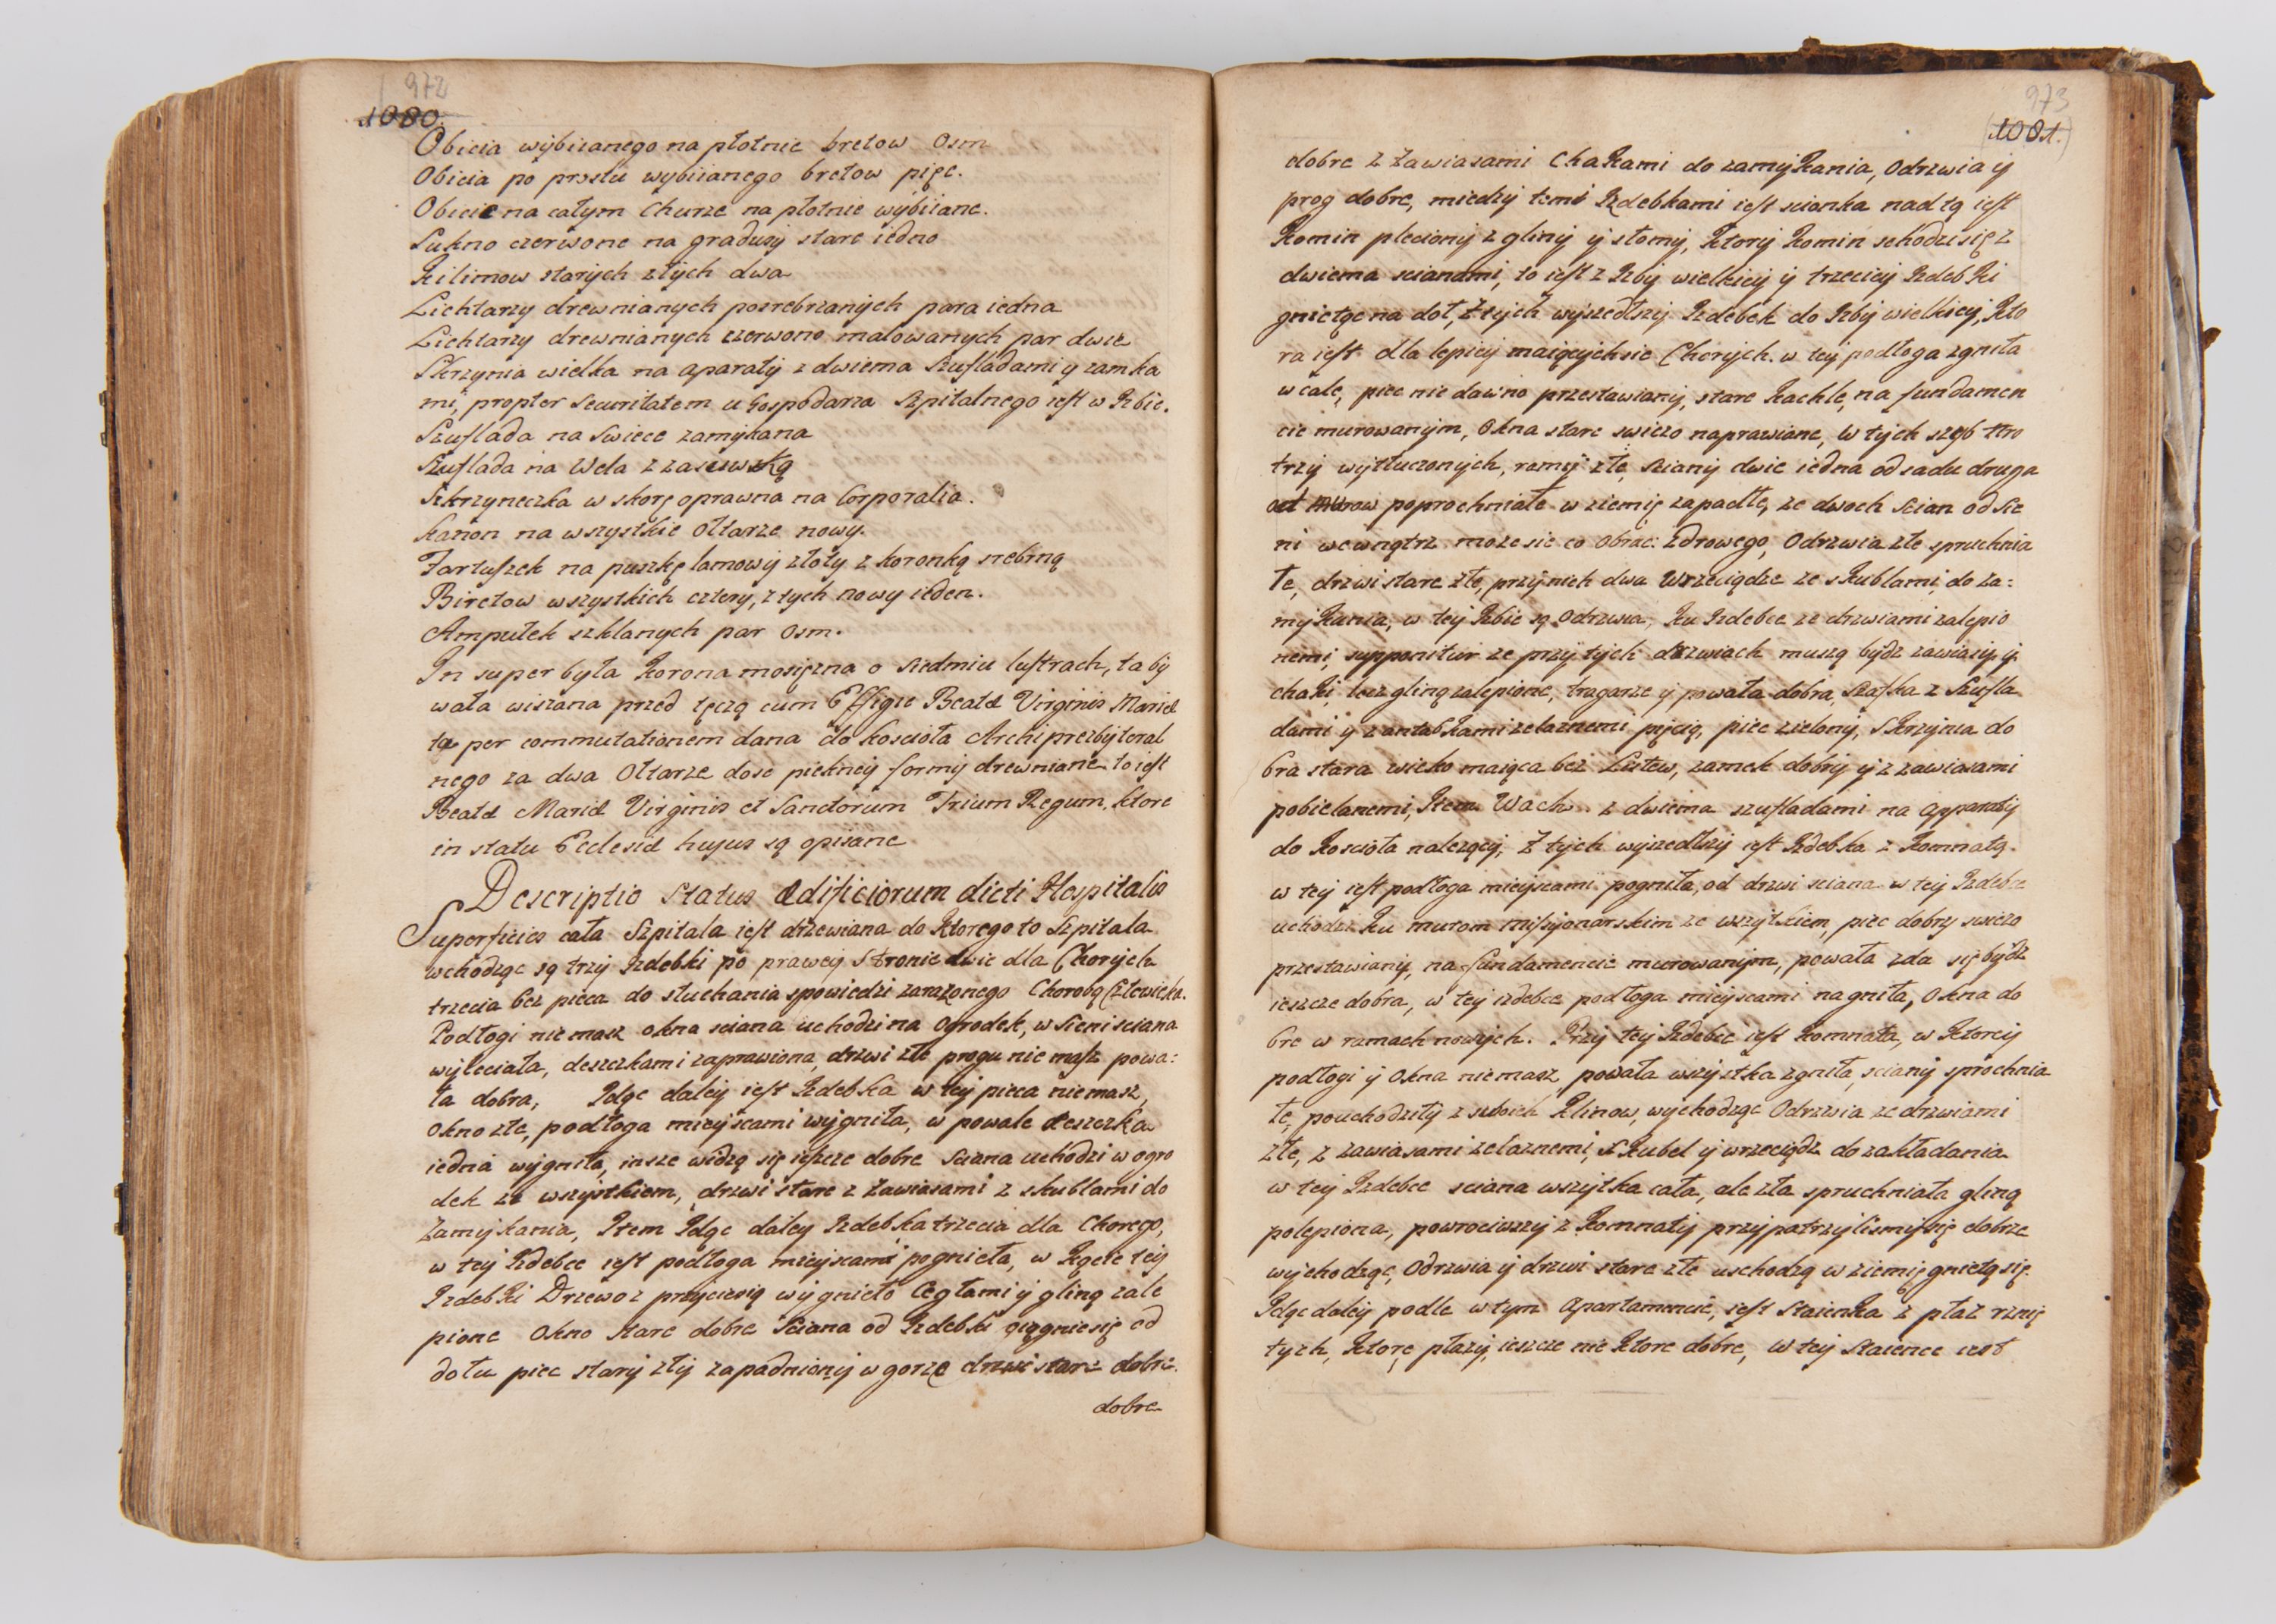 972
1080.
Obicia wybiianego na płotnie bretow Osm
Obicia po prostu wybiianego bretow pięc.
Obicie na całym Churze na płotnie wybiiane.
Sukno czerwone na gradusy stare iedno
Kilimow starych złych dwa
Lichtarzy drewnianych posrebrzanych para iedna
Lichtarzy drewnianych czerwono malowanych par dwie
Skrzynia wielka na aparaty z dwiema Szufladami y zamka
mi, propter Securitatem u Gospodarza Szpitalnego iest w Izbie.
Szuflada na Swiece zamykana
Szuflada na Wela z zasuwką
Skrzyneczka w skorę oprawna na Corporalia.
Kanon na wszystkie Ołtarze nowy.
Fartuszek na puszkę lamowy złoty z koronką srebrną
Biretow wszystkich cztery, z tych nowy ieden.
Ampułek szklanych par Osm.
In super była Korona mosięzna o siedmiu lustrach, ta by
wała wiszana przed tęczą cum Effigie Beatæ Virginis Mariæ
ta per commutationem dana do Koscioła Archipresbyteral
nego za dwa Ołtarze dosc piekney formy drewniane to iest
Beatæ Mariæ Virginis et Sanctorum Trium Regum, ktore
in statu Ecclesiæ hujus są opisane
Descriptio Status Ædificiorum dicti Hospitalis
Superficies cała Szpitala iest drzewiana do Ktorego to Szpitala
wchodząc są trzy Izdebki po prawey Stronie dwie dla Chorych
trzecia bez pieca do słuchania spowiedzi zarazonego Chorobą Człowieka.
Podłogi nie masz okna sciana uchodzi na Ogrodek, w Sieni sciana
wyleciała, deszczkami zaprawiona, drzwi złe progu nie masz powa:
ła dobra, Idąc daley iest Izdebka w tey pieca nie masz,
Okno złe, podłoga mieyscami wygniła, w powale deszczka
iedna wygniła, insze widzą się ieszcze dobre Sciana uchodzi w ogro
dek ze wszystkiem, drzwi stare z Zawiasami z skublami do
Zamykania, Item Idąc daley Izdebka trzecia dla Chorego,
w tey Izdebce iest podłoga mieyscami pogniła, w Kącie tey
Izdebki Drzewo z przyciesią wygniło Cegłami y gliną zale
pione Okno stare dobre Sciana od Izdebki ciągnie się od
dołu piec stary zły zapadniony w gorze drzwi stare dobre.
dobre
973
1081.
dobre z Zawiasami Chakami do zamykania, Odrzwia y
prog dobre, miedzy temi Izdebkami iest scianka nad tą iest
Komin pleciony z gliny y słomy, Ktory Komin schodzi się z
dwiema scianami, to iest z Izby wielkiey y trzeciey Izdebki
gnietąc na doł, Z tych wyszedłszy Izdebek do Izby wielkiey, Kto
ra iest dla lepiey maiących sie Chorych. w tey podłoga zgniła
w cale, piec nie dawno przestawiany, stare Kachle, na fundamen
cie murowanym, Okna stare swiezo naprawiane, w tych szyb
trzy wytłuczonych, ramy złe, sciany dwie iedna od sadu druga
od murow poprochniałe w ziemię zapadłe, ze dwoch Scian od Sie
ni wewnątrz moze sie co obrac zdrowego, Odrzwia złe spruchnia
łe, drzwi stare złe, przy nich dwa Wrzeciądze ze skublami do za:
mykania, w tey Izbie są Odrzwia, Ku Izdebce ze drzwiami zalepio
nemi, supponitur ze przy tych drzwiach muszą bydz zawiasy y
chaki, lecz gliną zalepione, tragarze y powała dobra, Szafka z Szufla
dami y z antabkami zelaznemi pięcią, piec zielony, Skrzynia do
bra stara wieko maiąca bez Listew, zamek dobry y z zawiasami
pobielanemi, Item Wach. z dwiema szufladami na apparaty
do Koscioła nalezący, Z tych wyszedłszy iest Izdebka z Komnatą.
w tey iest podłoga mieyscami pogniła, od drzwi sciana w tey Izdebce
uchodzi Ku murom missyonarskim ze wszytkiem, piec dobry swiezo
przestawiany, na fundamencie murowanym, powała zda się bydz
ieszcze dobra, w tey izdebce podłoga mieyscami nagniła, Okna do
bre w ramach nowych. Przy tey Izdebce iest Komnata, w Ktorey
podłogi y Okna nie masz, powała wszystka zgniła, sciany sprochnia
łe, pouchodziły z swoich Klinow, wychodząc Odrzwia ze drzwiami
złe, z zawiasami zelaznemi, Skubel y wrzeciądz do zakładania
w tey Izdebce sciana wszytka cała, ale zła spruchniała gliną
polepiona, powrociwszy z Komnaty przypatrzylismy się dobrze
wychodząc, Odrzwia y drzwi stare złe uschodzą w ziemię gnietą się.
Idąc daley podle w tym Apartamencie, iest Staienka z płaz rznię
tych, Ktore płazy, ieszcze nie Ktore dobre, w tey Staience iest